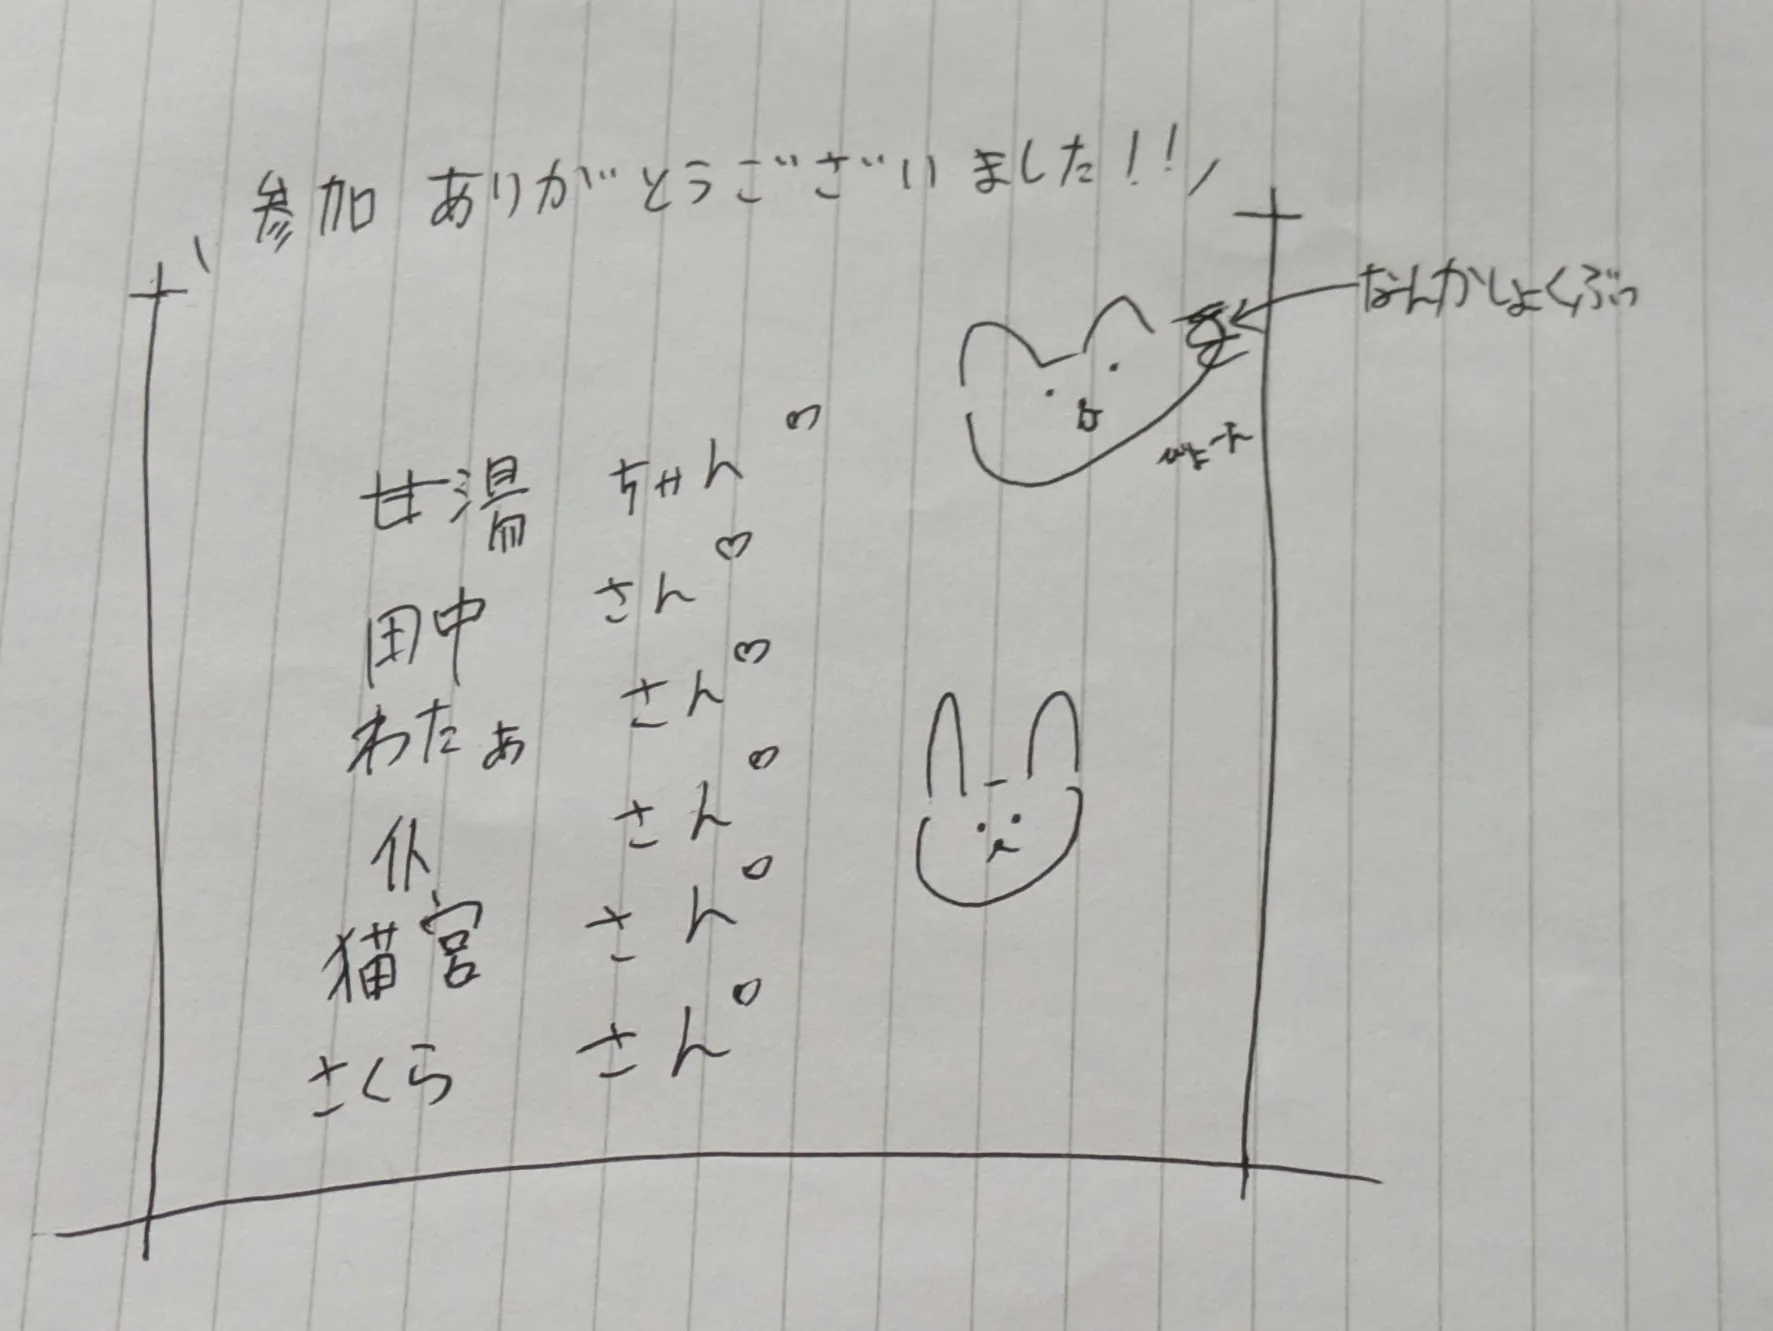 参加ありがとうございました!!
なんかしょくぶつ
甘湯ちゃん♡
田中さん♡
わたぁさん♡
仆さん♡
猫宮さん♡
さくらさん♡